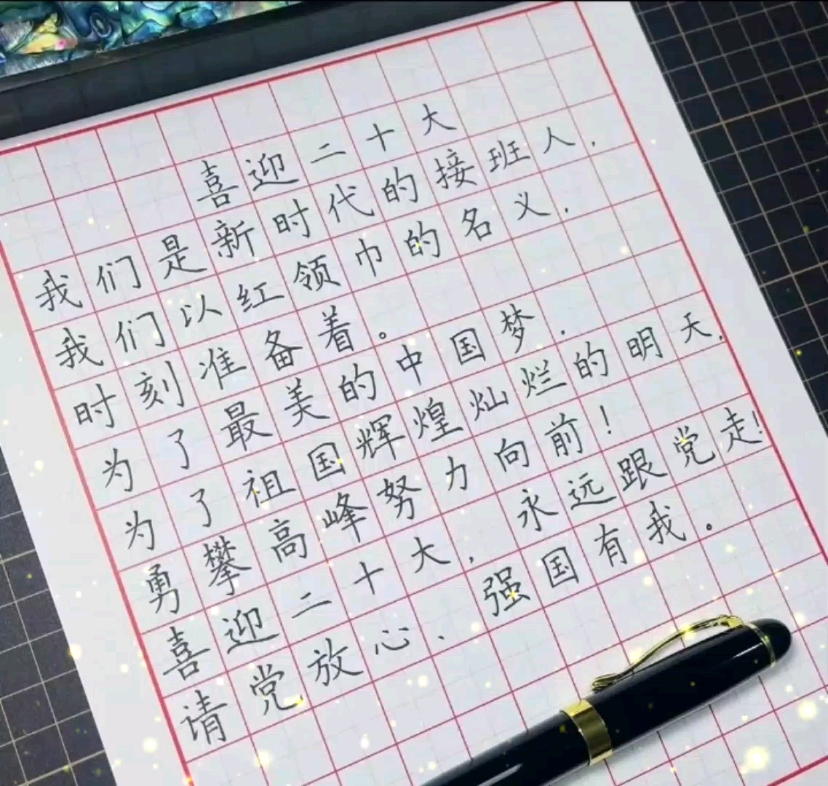 喜迎二十大
我们是新时代的接班人，
我们以红领巾的名义，
时刻准备着。
为了最美的中国梦，
为了祖国辉煌灿烂的明天，
勇攀高峰努力向前！
喜迎二十大，永远跟党走！
请党放心、强国有我。